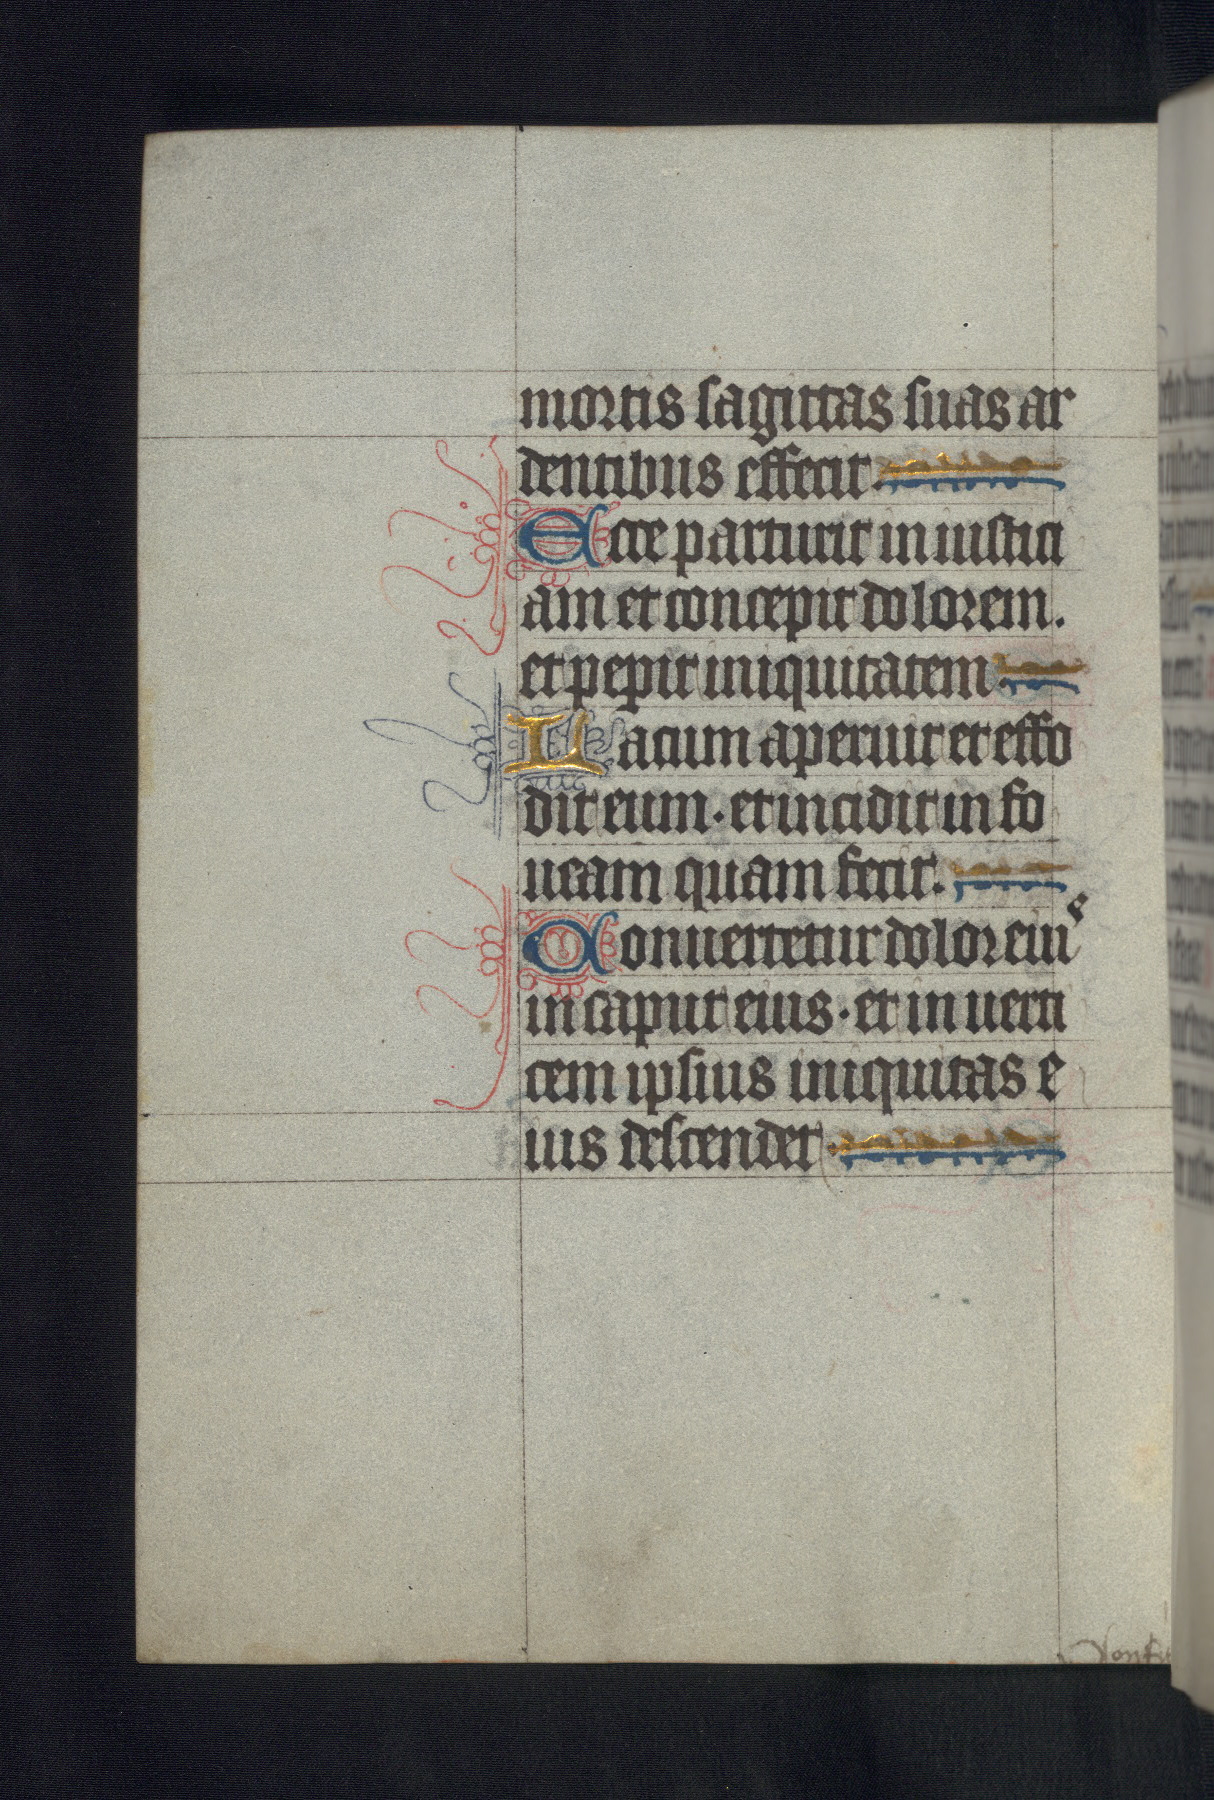 mortis sagittas suas ar
dentibus effecit.
Ecce parturit in iustici
am et concepit dolorem.
et pepit iniquitatem.
Lacum aperuit et effo
dit eum. et incidit in fo
ueam quam fecit.
Conuertetur dolor eius
in caput eius. et in uerti
cem ipsius iniquitas e
ius descendet.